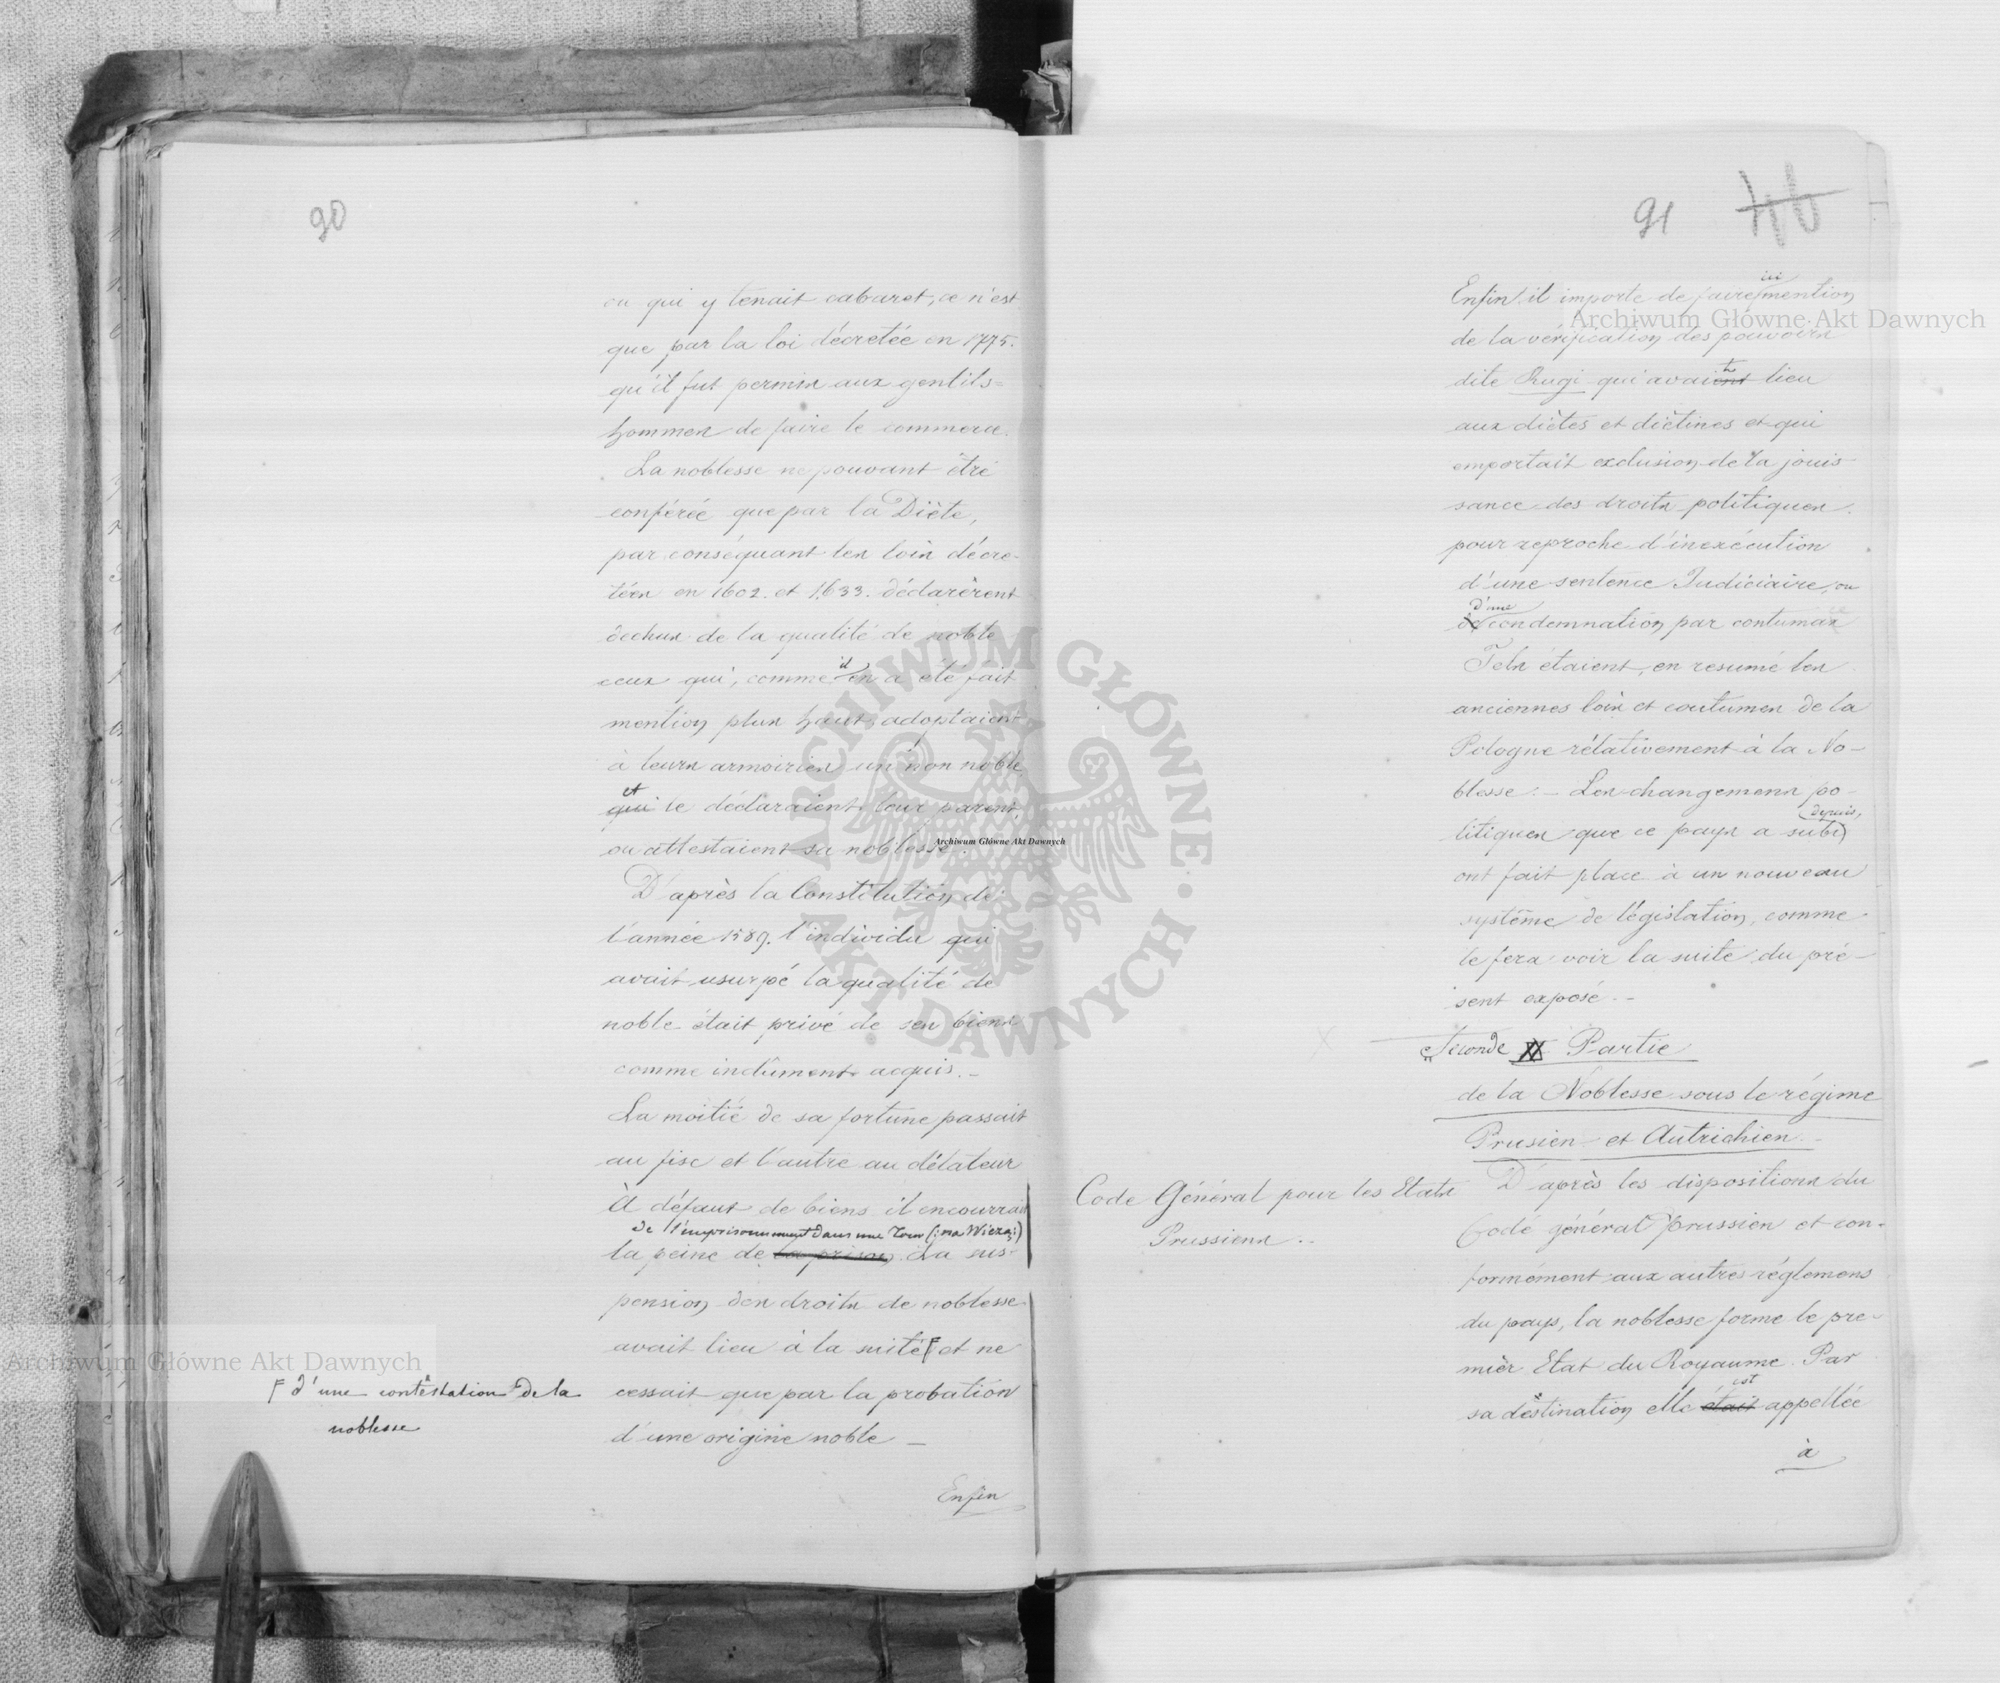 90
ou qui y tenait cabaret, ce n'est
que par la loi décretée en 1775.
qu'il fut permis aux gentils=
hommes de faire le commerce.
La noblesse ne pouvant être
conférée que par la Diète,
par conséquant les lois décre-
tées en 1602. et 1633. déclarèrent
dechus de la qualité de noble
ceux qui, comme il en a été fait
mention plus haut, adoptaient
à leurs armoiries un non noble
et
qui le déclaraient leur parent,
ou attestaient sa noblesse.
D'après la Constitution de
l'année 1589. l'individu qui
avait usurpé la qualité de
noble était privé de ses biens
comme indûment acquis. -
La moitié de sa fortune passait
au fisc et l'autre au délateur
À défaut de biens il encourrait
de l'emprisonnement dans une Tour (: na Wieży :)
la peine de la prison. La sus-
pension des droits de noblesse
avait lieu à la suite F et ne
F d'une contestation de la
noblesse
cessait que par la probation
d'une origine noble —
Enfin
91
Enfin, il importe de faire ici mention
de la vérification des pouvoirs
dite Rugi qui avaient lieu
aux diètes et diètines et qui
emportait exclusion de la jouis
sance des droits politiques.
pour reproche d'inexécution
d'une sentence Judiciaire, ou
d'une
de condemnation par contumace
Tels étaient, en resumé les
anciennes lois et coutumes de la
Pologne rélativement à la No-
blesse. - Les changemens po-
litiques que ce pays a subi depuis,
ont fait place à un nouveau
système de législation, comme
le fera voir la suite du pré-
sent exposé. -
Seconde Partie
de la Noblesse sous le régime
Prusien et Autrichien. -
Code Général pour les Etats
Prussiens. -
D'après les dispositions du
Code général prussien et con-
formément aux autres réglemens
du pays, la noblesse forme le pre-
mièr Etat du Royaume. Par
est
sa destination elle était appellée
à
Archiwum Główne Akt Dawnych
Archiwum Główne Akt Dawnych
Archiwum Główne Akt Dawnych
ARCHIWUM GŁÓWNE · AKT DAWNYCH ·